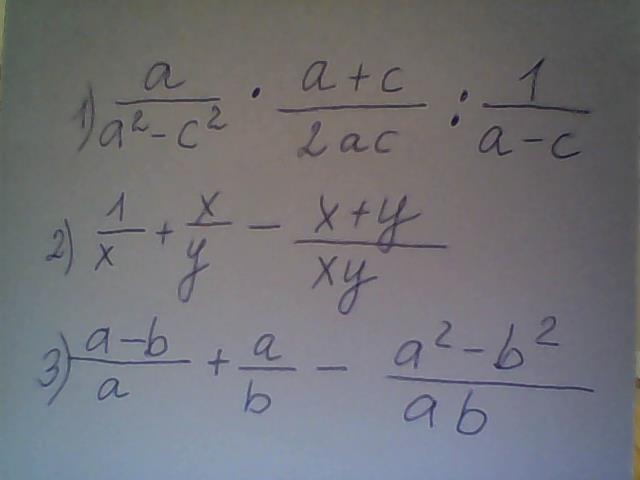 1) a/(a² - c²) · (a + c)/(2ac) : 1/(a - c)
2) 1/x + x/y - (x + y)/(xy)
3) (a - b)/a + a/b - (a² - b²)/(ab)